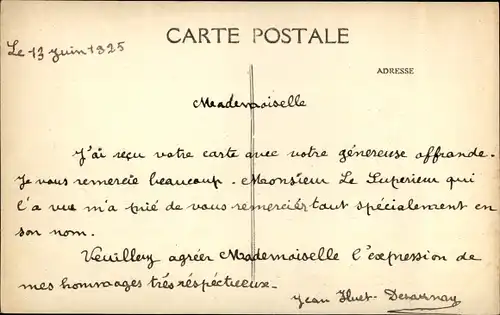 CARTE POSTALE
Le 13 juin 1925
ADRESSE
Mademoiselle
J'ai reçu votre carte avec votre généreuse offrande.
Je vous remercie beaucoup. Monsieur Le Supérieur qui
l'a vue m'a prié de vous remercier tout spécialement en
son nom.
Veuillez agréer Mademoiselle l'expression de
mes hommages très réspéctueux.
Jean Huet